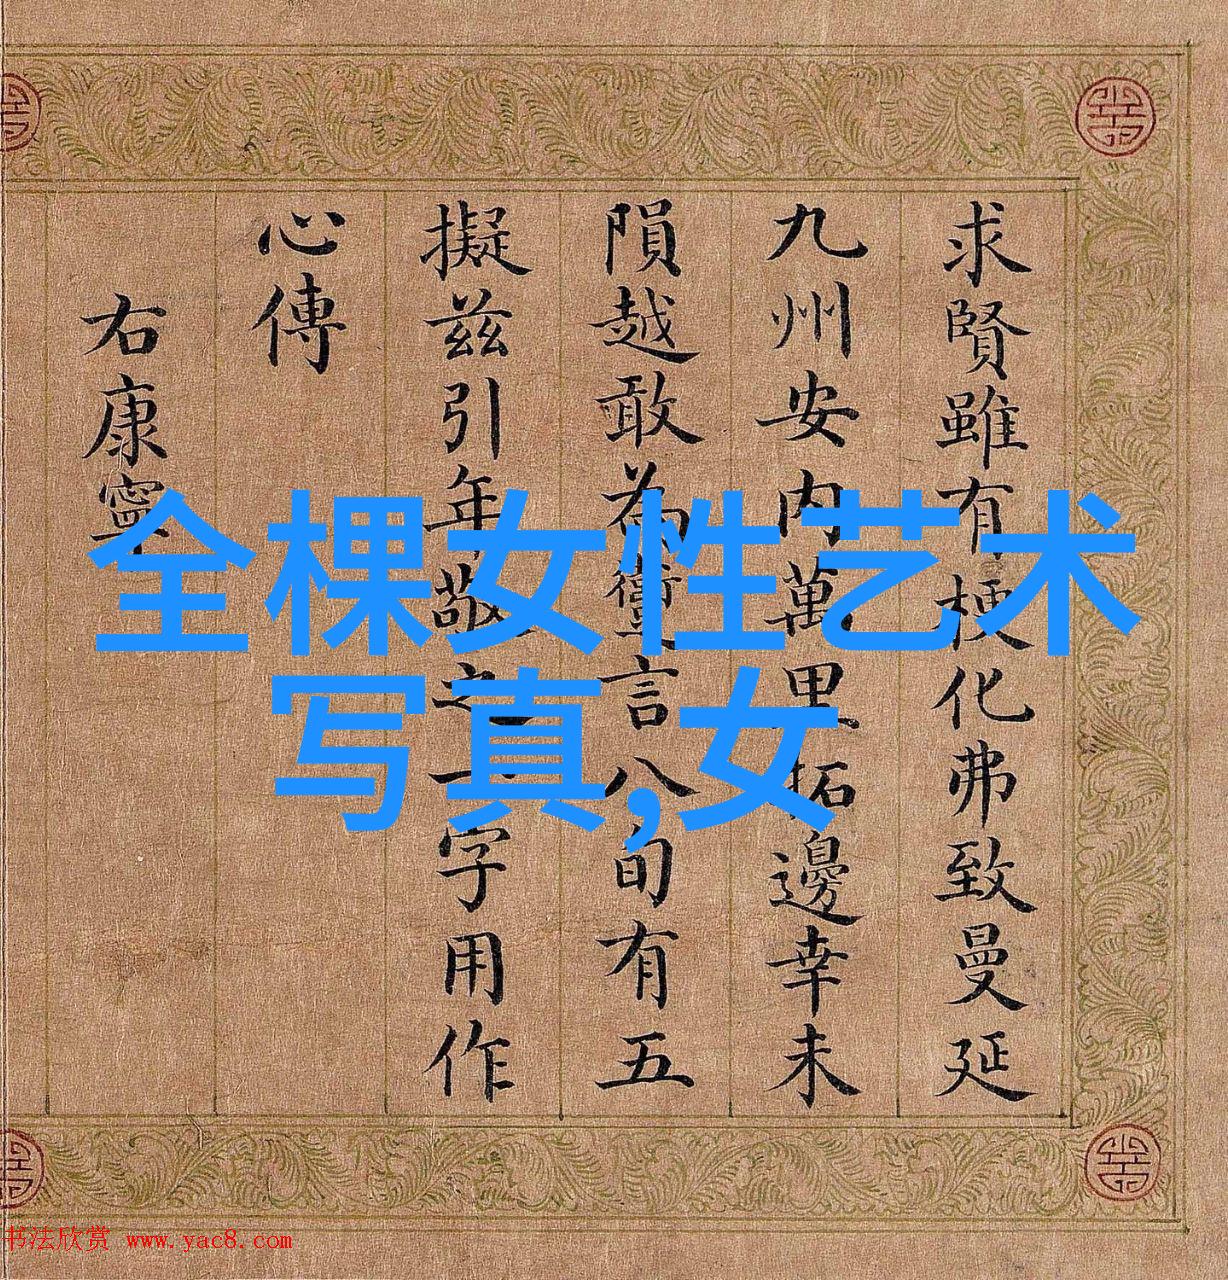 求賢雖有梗化弗致曼延
九州安内萬里拓邊幸未
隕越敢為讆言八旬有五
擬兹引年敬之一字用作
心傳
右康寧
全棵女性艺术
写真,女
书法欣赏 www.yac8.com